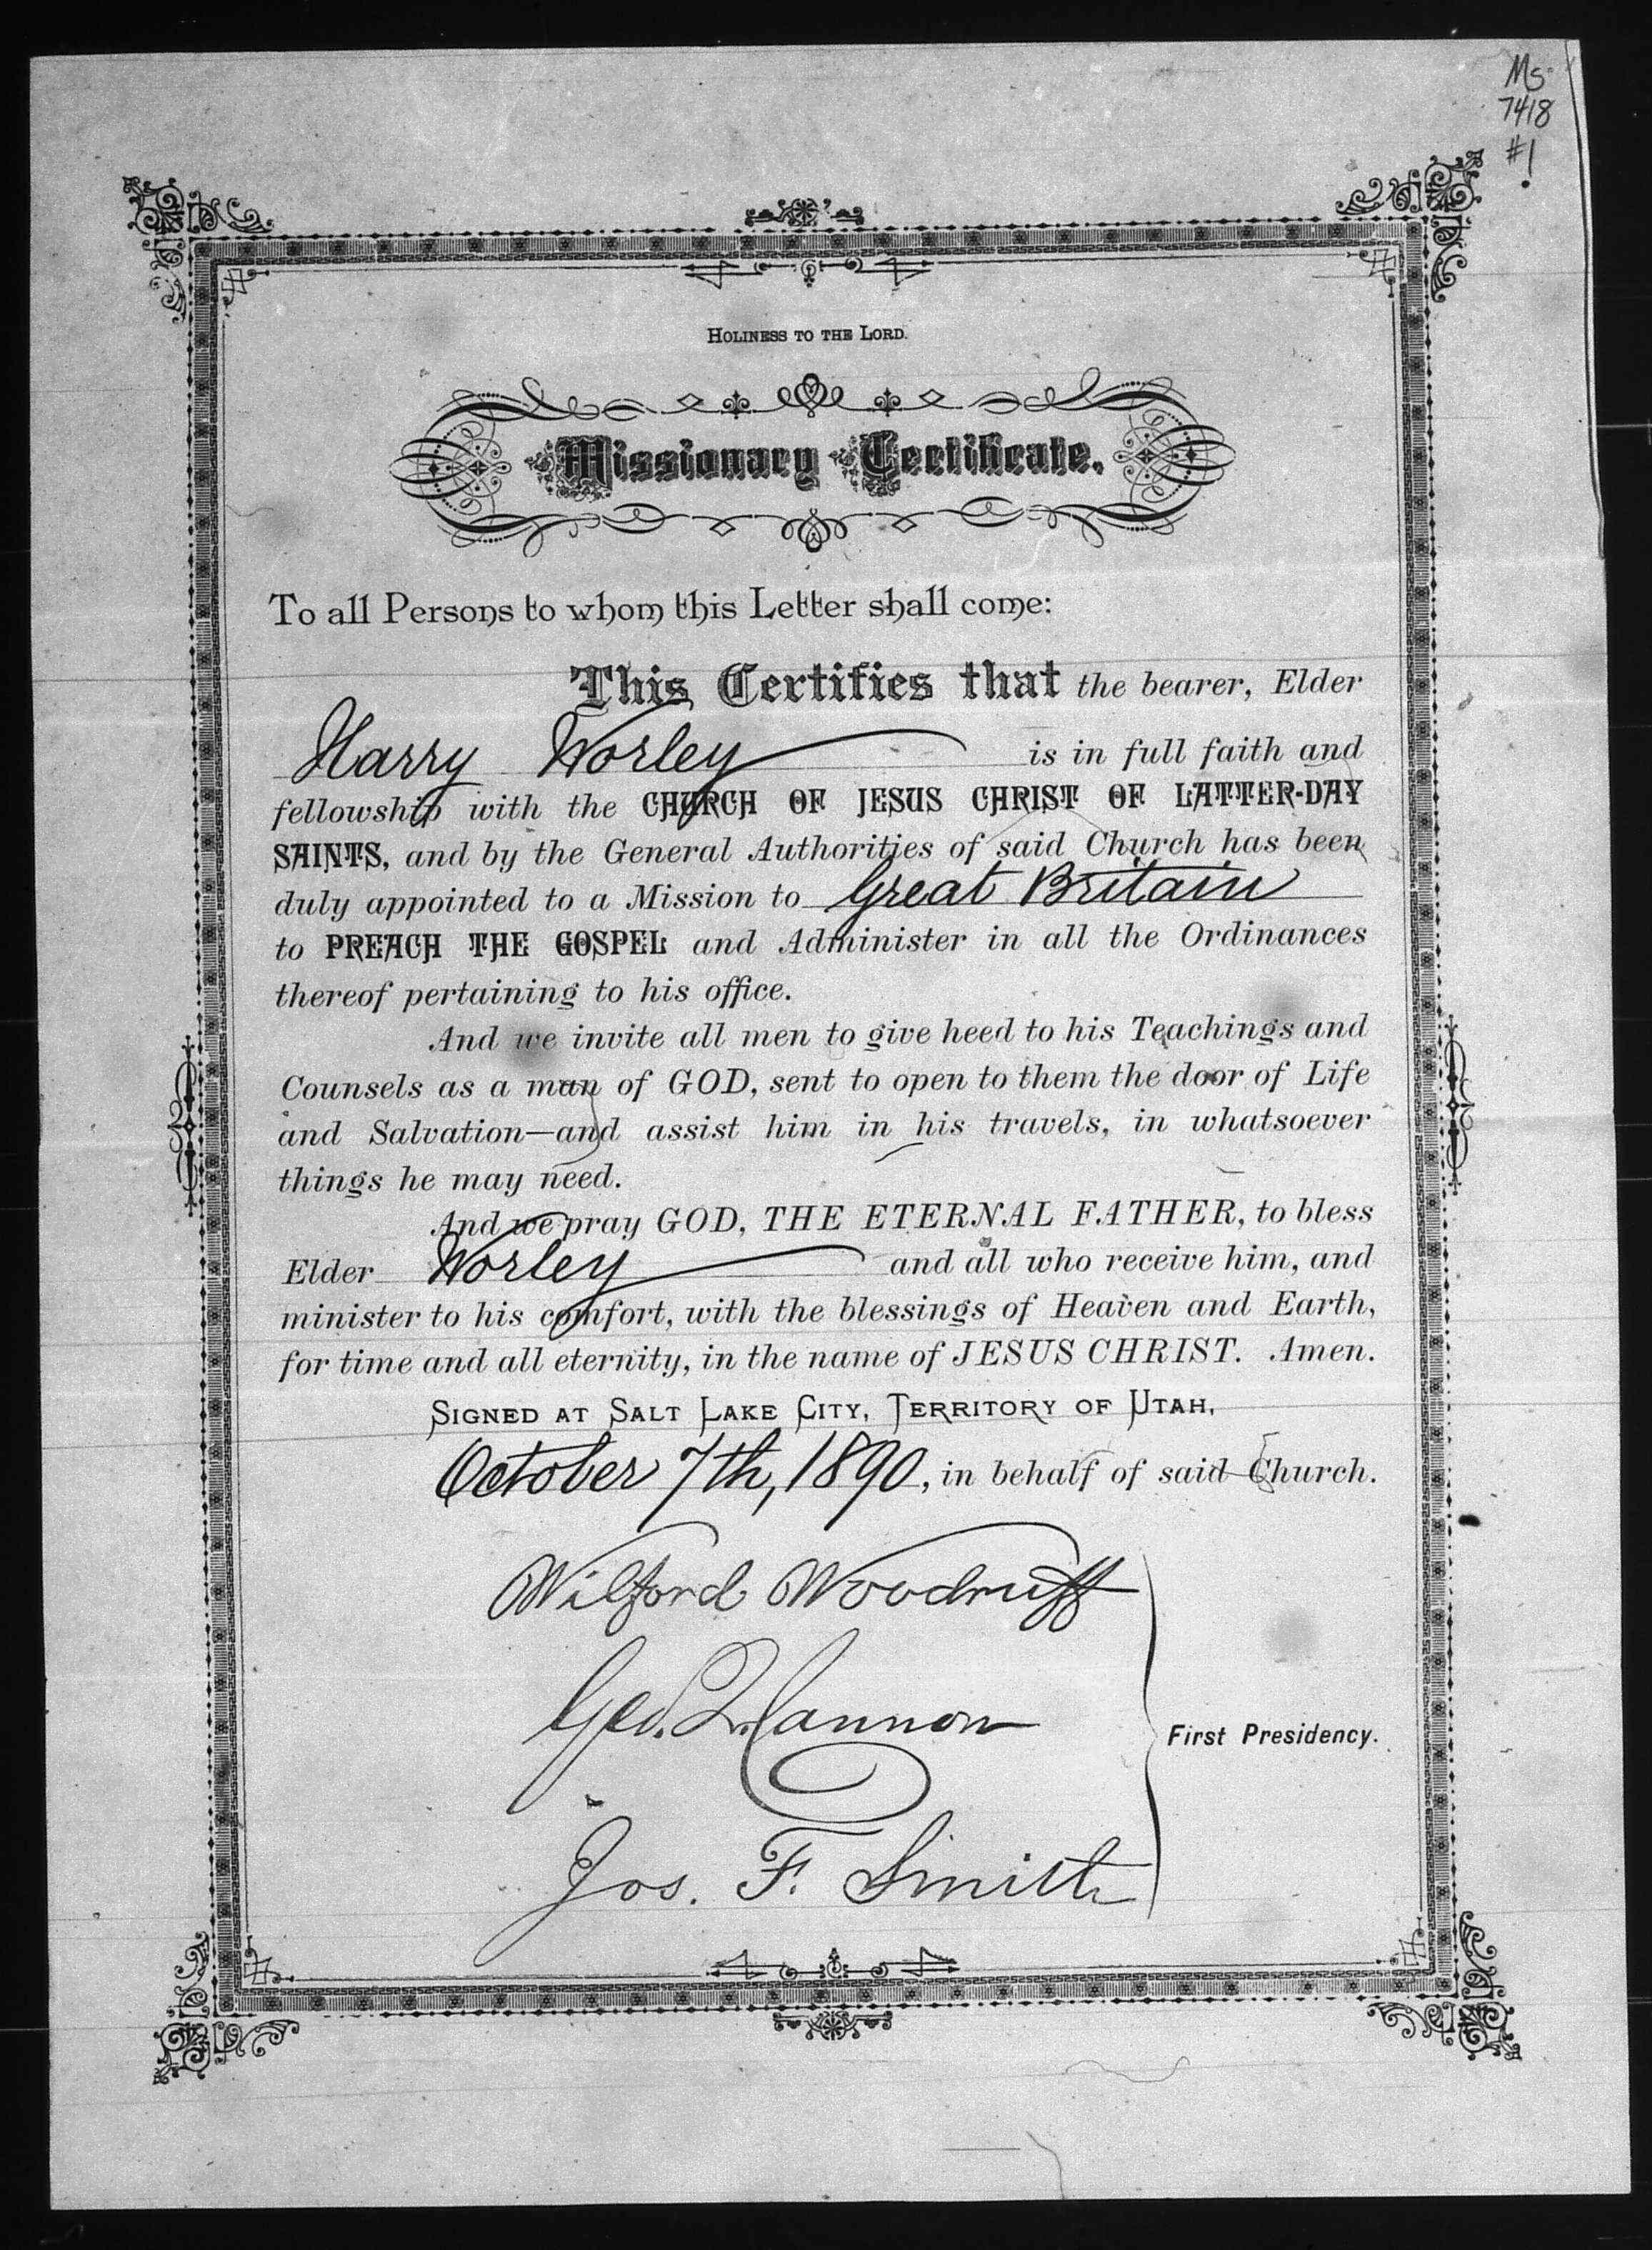 Ms
7418
#1
HOLINESS TO THE LORD.
Missionary Certificate.
To all Persons to whom this Letter shall come:
This Certifies that the bearer, Elder
Harry Worley is in full faith and
fellowship with the CHURCH OF JESUS CHRIST OF LATTER-DAY
SAINTS, and by the General Authorities of said Church has been
duly appointed to a Mission to Great Britain
to PREACH THE GOSPEL and Administer in all the Ordinances
thereof pertaining to his office.
And we invite all men to give heed to his Teachings and
Counsels as a man of GOD, sent to open to them the door of Life
and Salvation—and assist him in his travels, in whatsoever
things he may need.
And we pray GOD, THE ETERNAL FATHER, to bless
Elder Worley and all who receive him, and
minister to his comfort, with the blessings of Heaven and Earth,
for time and all eternity, in the name of JESUS CHRIST. Amen.
SIGNED AT SALT LAKE CITY, TERRITORY OF UTAH,
October 7th, 1890, in behalf of said Church.
Wilford Woodruff
Geo. Q. Cannon
First Presidency.
Jos. F. Smith